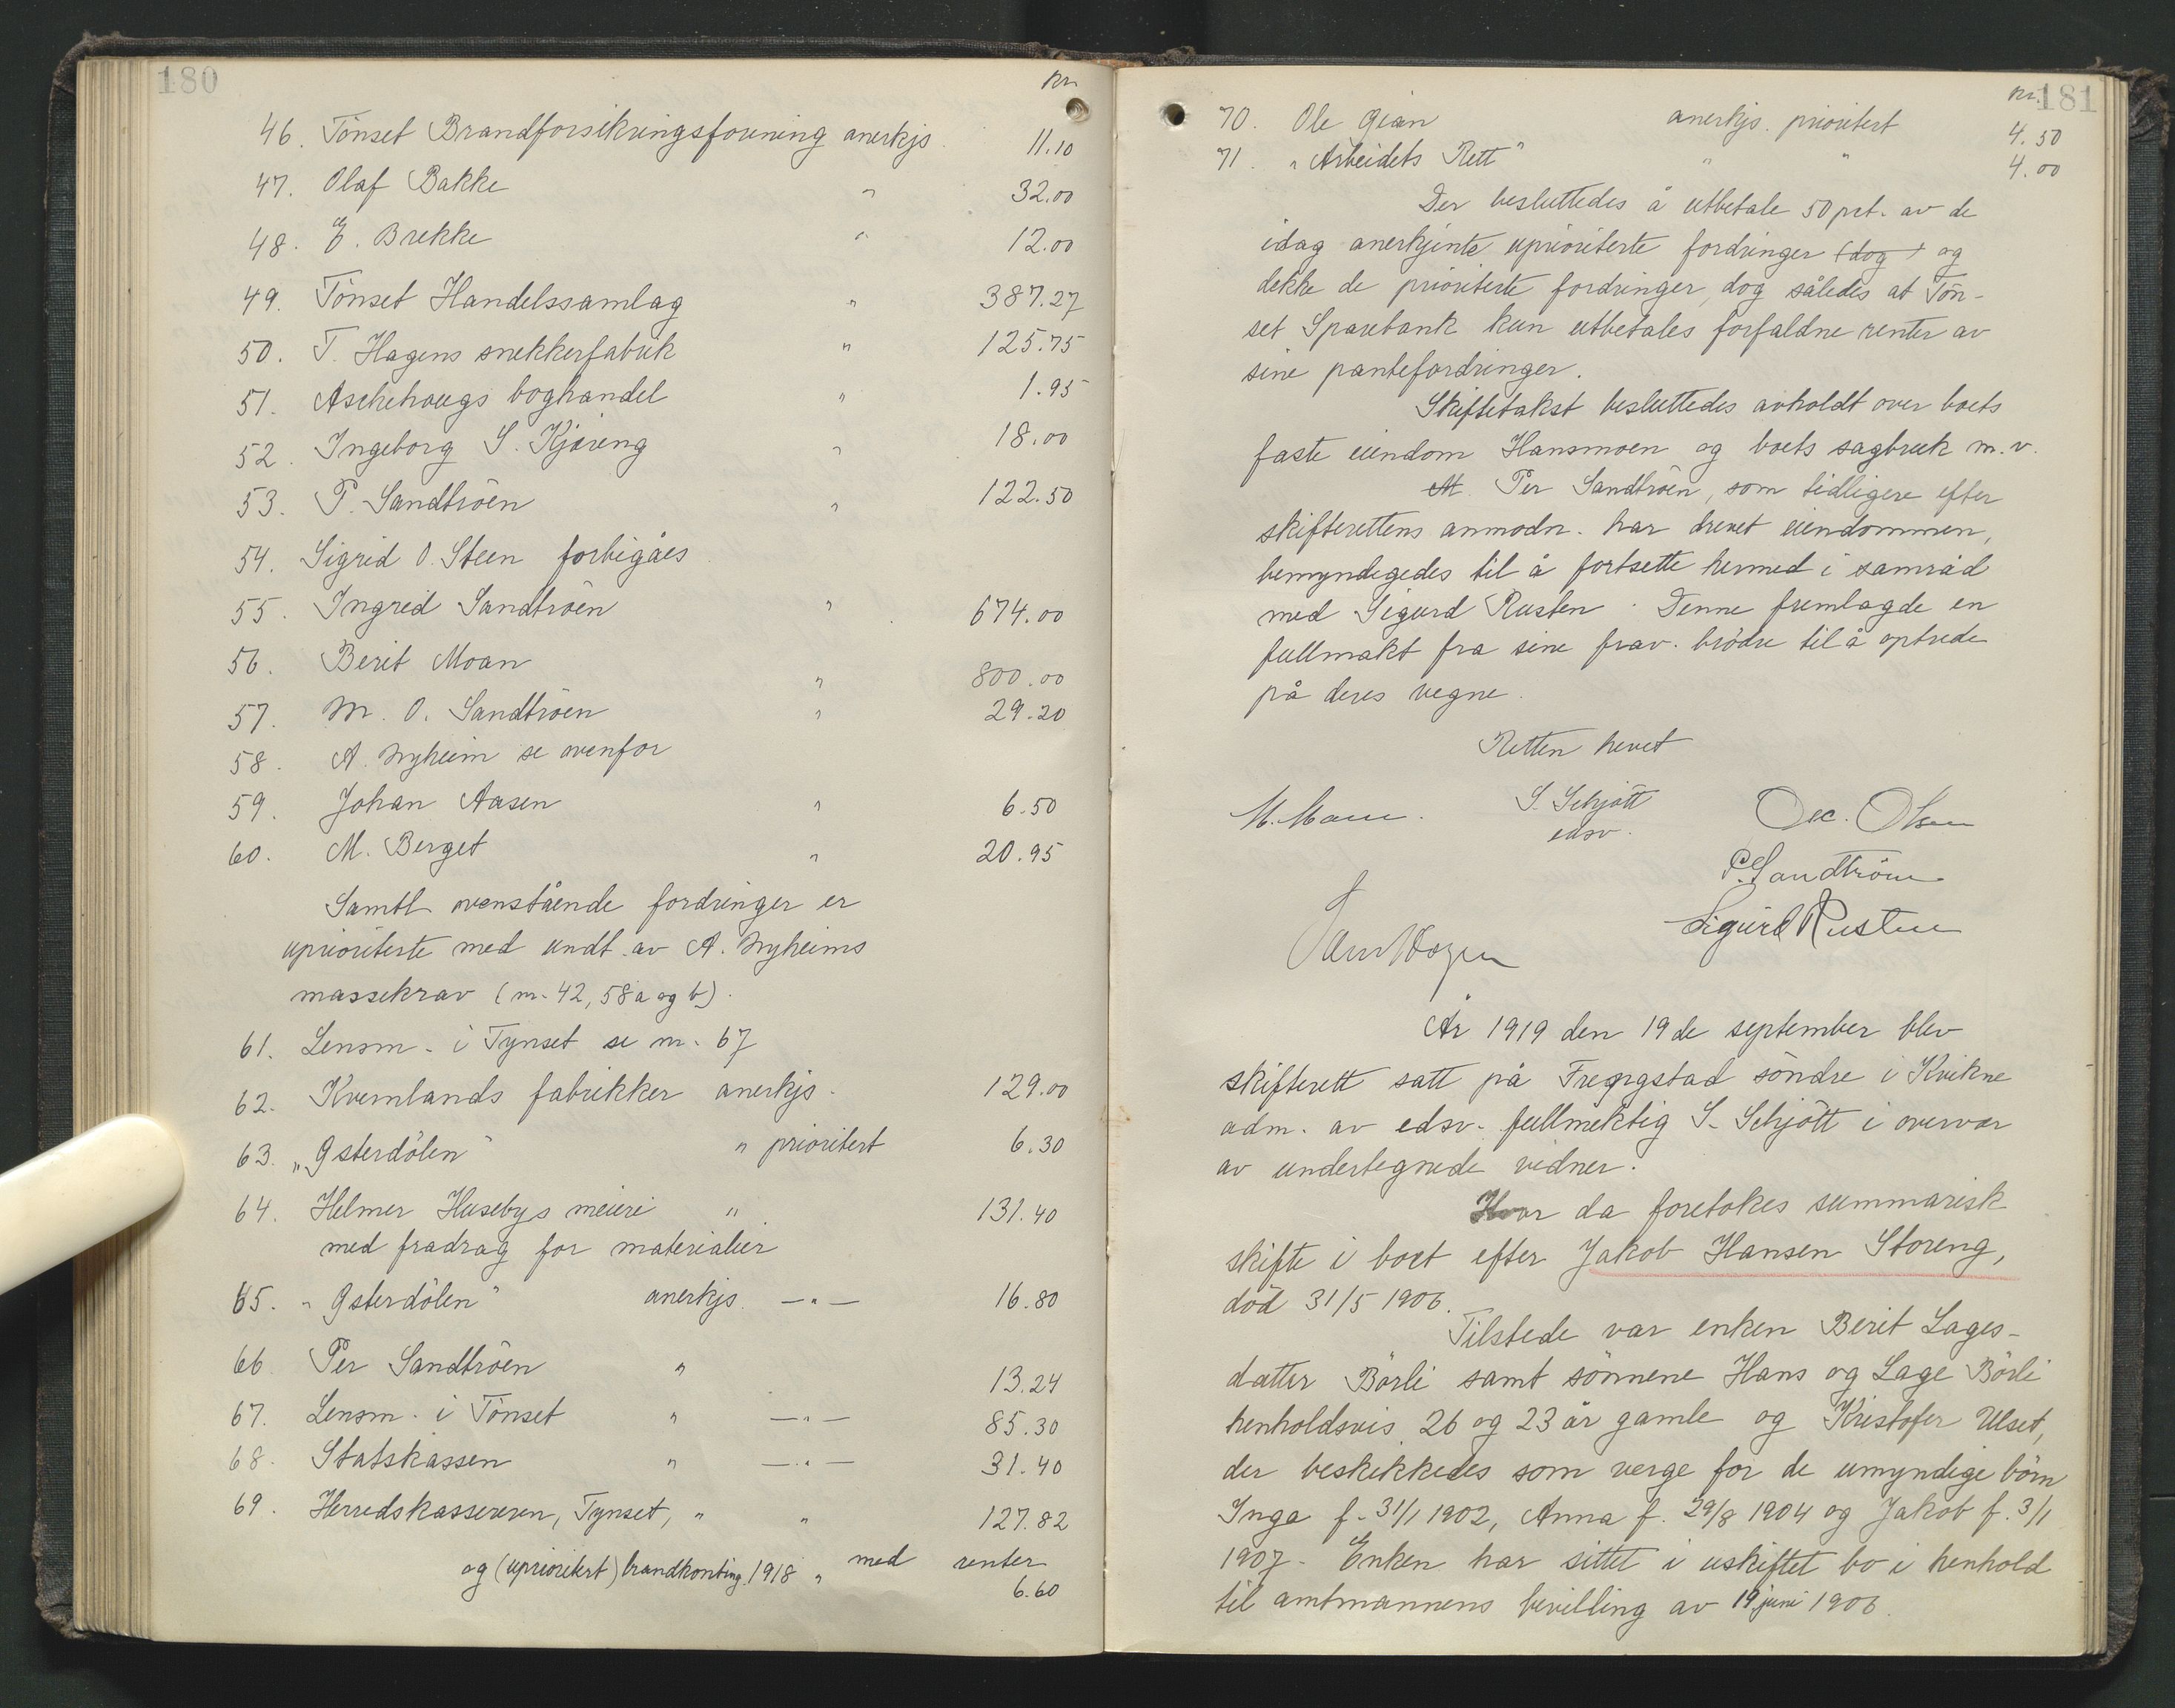 180
kr.
46. Tönset Brandforsikringsforening anerkjs. 11.10
47. Olaf Bakke " 32.00
48. E. Brekke " 12.00
49. Tönset Handelssamlag " 387.27
50. T. Hagens snekkerfabrik " 125.75
51. Aschehougs boghandel " 1.95
52. Ingeborg S. Kjöreng " 18.00
53. P. Sandtröen " 122.50
54. Sigrid O. Steen forbigåes
55. Ingrid Sandtröen " 674.00
56. Berit Moan " 800.00
57. M. O. Sandtröen " 29.20
58. A. Nyheim se ovenfor
59. Johan Aasen " 6.50
60. M. Berget " 20.95
Samtl. ovenstående fordringer er
uprioriterte med undt. av A. Nyheims
massekrav (nr. 42, 58 a og b).
61. Lensm. i Tynset se nr. 67
62. Kvernlands fabrikker anerkjs. 129.00
63. „Østerdölen" " prioritert 6.30
64. Helmer Husebys meieri " 131.40
med fradrag for materialier
65. „Østerdölen" anerkjs. —"— 16.80
66 Per Sandtröen " 13.24
67. Lensm. i Tönset " —"— 85.30
68. Statskassen " —"— 31.40
69. Herredskassereren, Tynset, " " 127.82
og (uprioritert) brandkonting. 1918 " med renter
6.60
181
kr.
70. Ole Gian anerkjs. prioritert 4.50
71. „Arbeidets Rett" " " 4.00
Der besluttedes å utbetale 50 pct. av de
idag anerkjente uprioriterte fordringer (dog) og
dekke de prioriterte fordringer, dog således at Tön-
set Sparebank kun utbetales forfaldne renter av
sine pantefordringer.
Skiftetakst besluttedes avholdt over boets
faste eiendom Hansmoen og boets sagbruk m.v.
M. Per Sandtröen, som tidligere efter
skifterettens anmodn. har drevet eiendommen,
bemyndigedes til å fortsette hermed i samråd
med Sigurd Rusten. Denne fremlagde en
fullmakt fra sine frav. brödre til å optrede
på deres vegne.
Retten hevet
M. Moan. S. Schjött Osc. Olsen
edsv.
P. Sandtröen
Sigurd Rusten
År 1919 den 19de september blev
skifterett satt på Frengstad söndre i Kvikne
adm. av edsv. fullmektig S. Schjött i overvær
av undertegnede vidner.
Hvor da foretokes summarisk
skifte i boet efter Jakob Hansen Storeng,
död 31/5 1906.
Tilstede var enken Berit Lages-
datter Börli samt sönnene Hans og Lage Börli
henholdsvis 26 og 23 år gamle og Kristofer Ulset,
der beskikkedes som verge for de umyndige börn
Inga f. 31/1 1902, Anna f. 29/8 1904 og Jakob f. 3/1
1907. Enken har sittet i uskiftet bo i henhold
til amtmannens bevilling av 19 juni 1906.